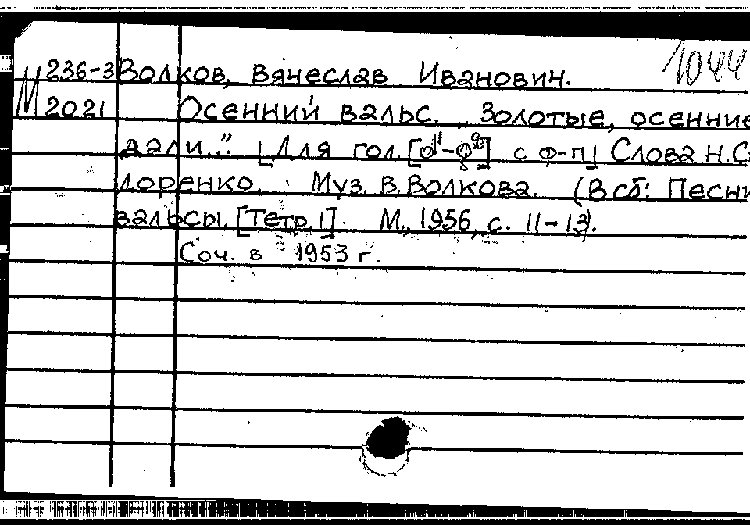 1044
М 236-3 Волков, Вячеслав Иванович.
2021 Осенний вальс. „Золотые, осенние
дали..." [Для гол. с ф-п.] Слова Н. С
доренко. Муз. В. Волкова. (В сб: Песни
вальсы. [Тетр. 1] М., 1956, с. 11-13).
Соч. в 1953 г.